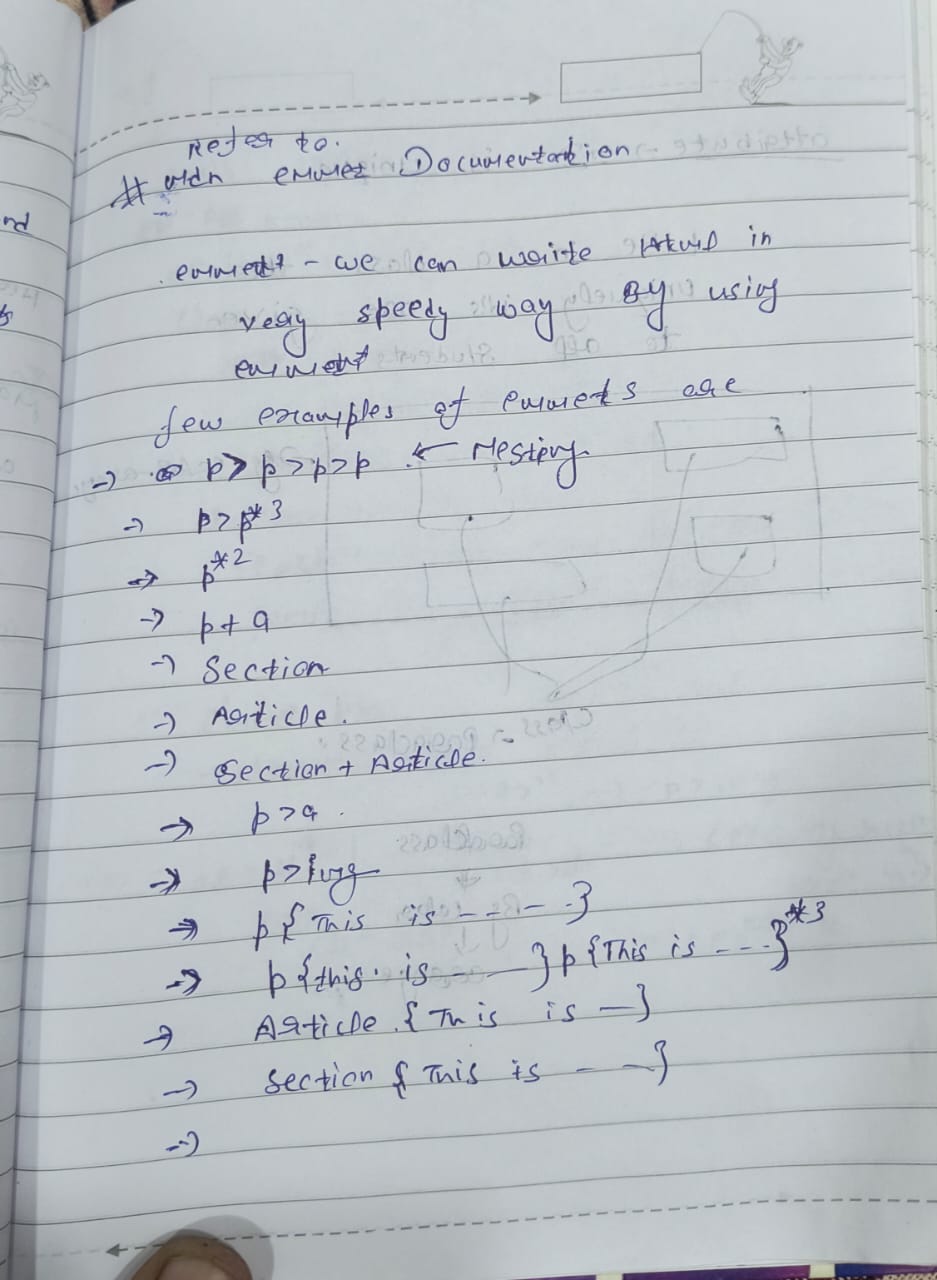 Refer to.
# mdn emmet Documentation
emmet - we can write HTML in
very speedy way By using
emmet
few examples of emmets are
-> p>p>p>p ← Nesting
-> p>p*3
-> p*2
-> p+a
-> Section
-> Article.
-> Section + Article.
-> p>a.
-> p>img
-> p{This is - - - -}
-> p{this is - —}p{This is ---}*3
-> Article.{This is —}
-> Section {This is - —}
->